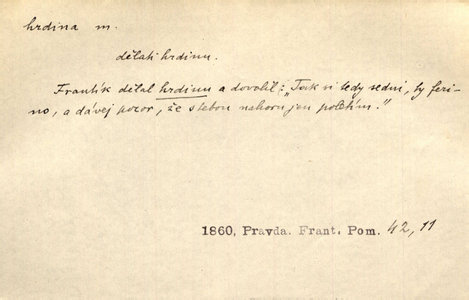 hrdina m.
dělati hrdinu.
Frantík dělal hrdinu a dovolil: „Tak si tedy sedni, ty feri-
no, a dávej pozor, že s tebou nahoru jen poletím."
1860, Pravda. Frant. Pom. 42, 11